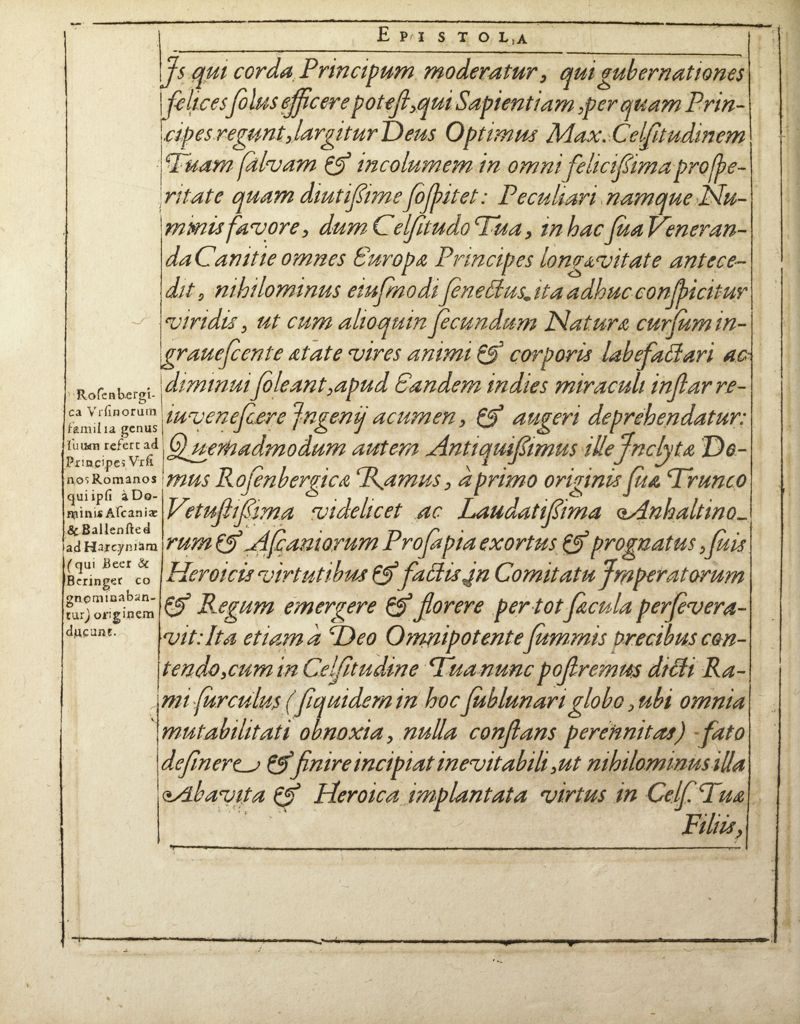 EPISTOLA
Js qui corda Principum moderatur, qui gubernationes
felices ſolus efficere poteſt, qui Sapientiam, per quam Prin-
cipes regunt, largitur Deus Optimus Max. Celſitudinem
Tuam ſalvam & incolumem in omni feliciſſima proſpe-
ritate quam diutiſſime ſoſpitet: Peculiari namque Nu-
minis favore, dum Celſitudo Tua, in hac ſua Veneran-
da Canitie omnes Europæ Principes longævitate antece-
dit, nihilominus eiuſmodi ſenectus ita adhuc conſpicitur
viridis, ut cum alioquin ſecundum Naturæ curſum in-
graueſcente ætate vires animi & corporis labefactari ac
diminui ſoleant, apud Eandem indies miraculi inſtar re-
iuveneſcere Jngenij acumen, & augeri deprehendatur:
Quemadmodum autem Antiquiſſimus ille Jnclytæ Do-
mus Roſenbergicæ Ramus, à primo originis ſuæ Trunco
Vetuſtiſſima videlicet ac Laudatiſſima Anhaltino-
rum & Aſcaniorum Proſapia exortus & prognatus, ſuis
Heroicis virtutibus & factis in Comitatu Jmperatorum
& Regum emergere & florere per tot ſæcula perſevera-
vit: Ita etiam à Deo Omnipotente ſummis precibus con-
tendo, cum in Celſitudine Tua nunc poſtremus dicti Ra-
mi ſurculus (ſiquidem in hoc ſublunari globo, ubi omnia
mutabilitati obnoxia, nulla conſtans perennitas) fato
deſinere & finire incipiat inevitabili, ut nihilominus illa
Abavita & Heroica implantata virtus in Celſ. Tuæ
Filiis,
Roſenbergi-
ca Vrſinorum
familia genus
ſuum refert ad
Principes Vrſi
nos Romanos
qui ipſi à Do-
minis Aſcaniæ
& Ballenſted
ad Harcyniam
(qui Beer &
Beringer co
gnominaban-
tur) originem
ducunt.